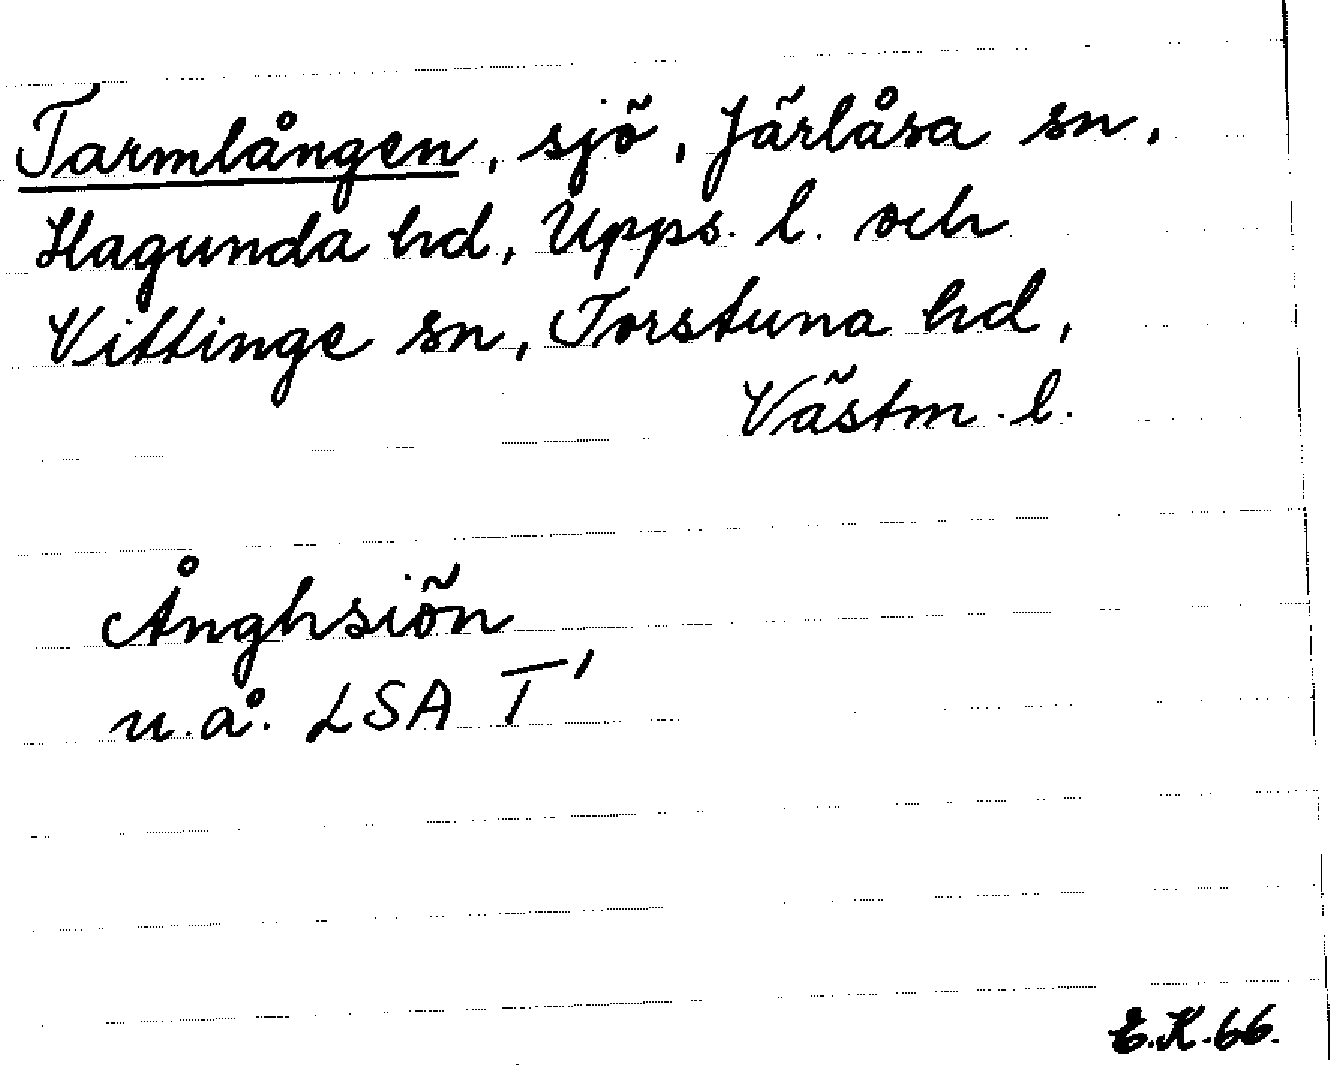 Tarmlången, sjö, Järlåsa sn,
Hagunda hd, Upps. l. och
Vittinge sn, Torstuna hd,
Västm. l.
Ånghsiön
u.å. LSA T'
E.K.66.